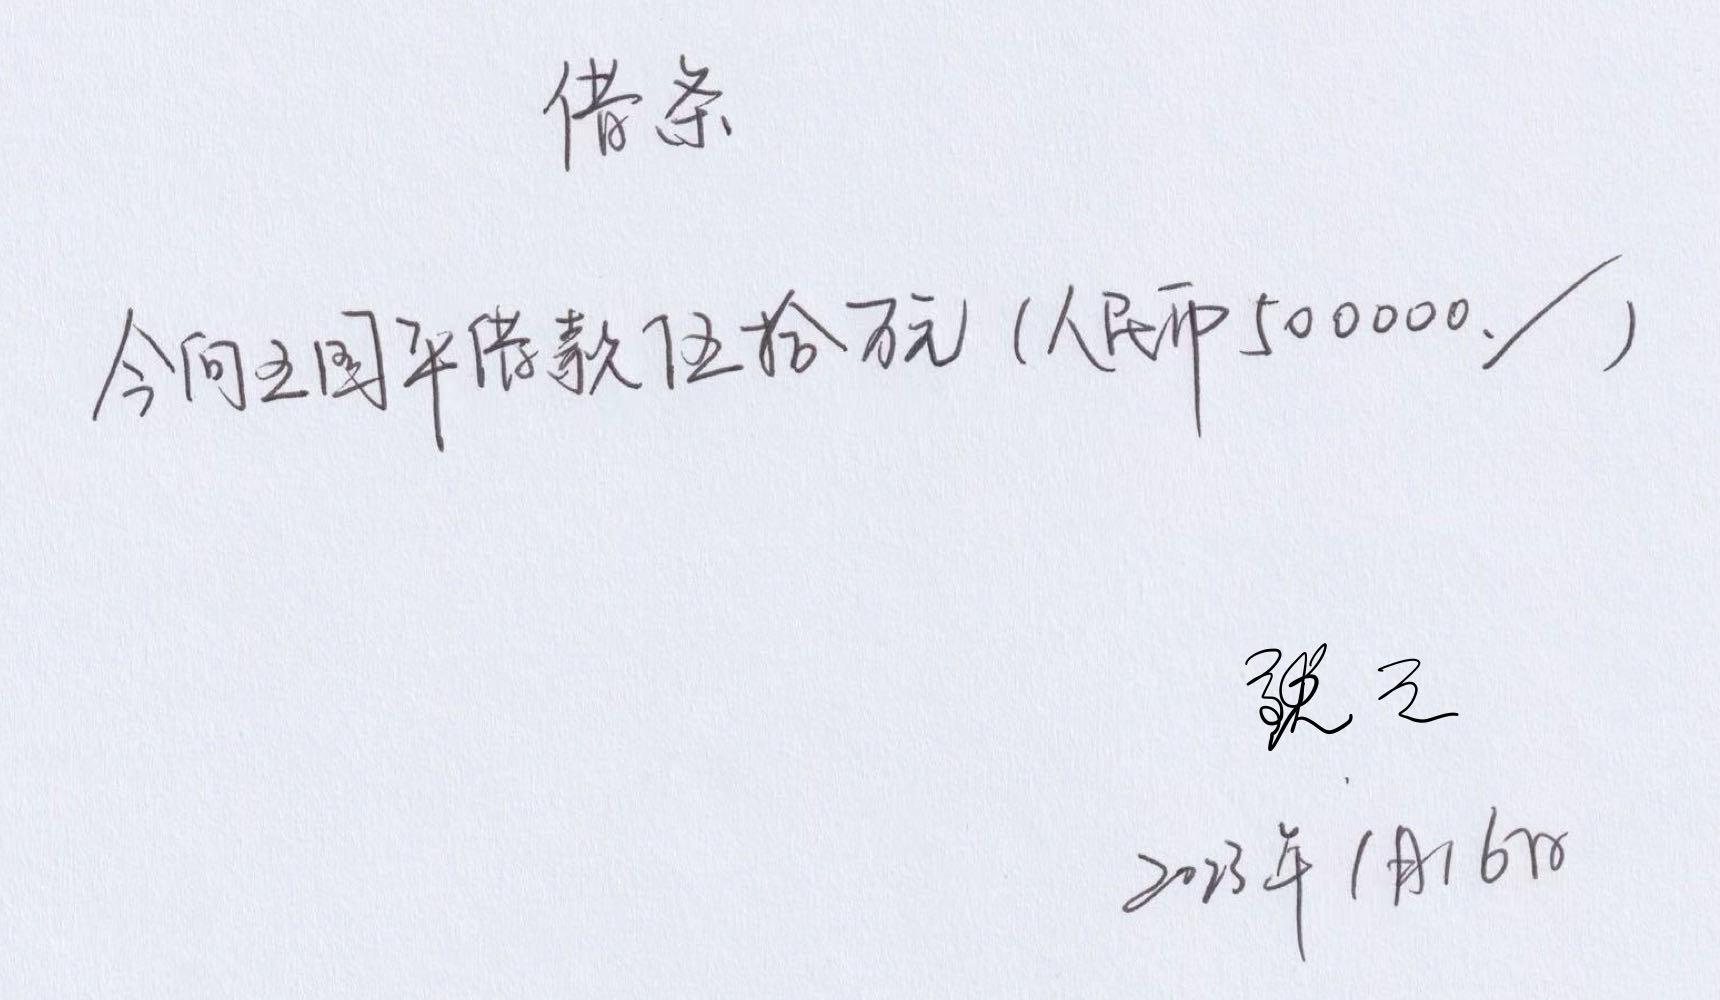 借条
今向王国平借款伍拾万元（人民币500000.／）
2023年1月16日